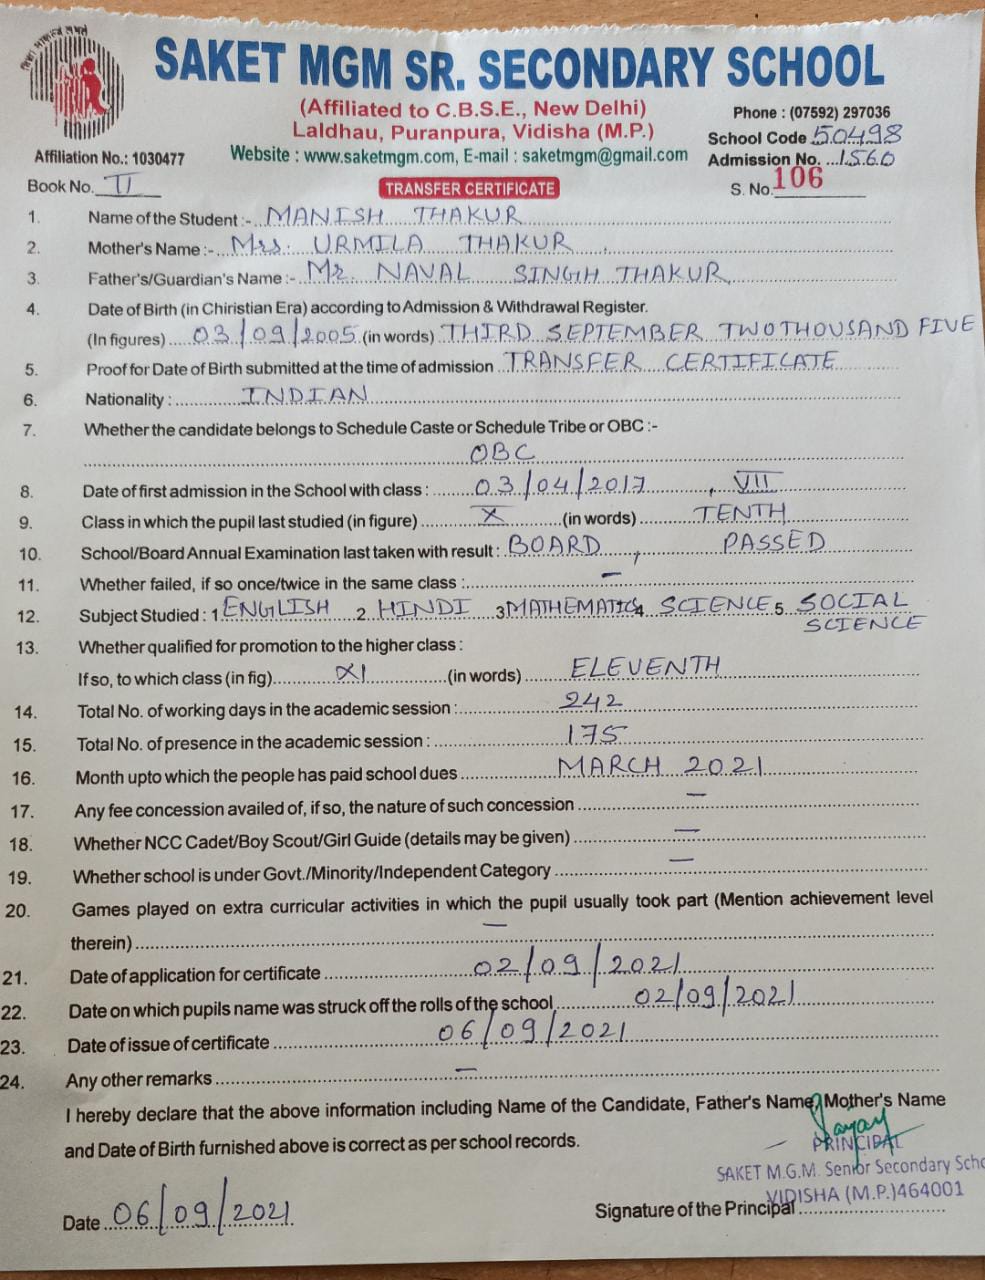 SAKET MGM SR. SECONDARY SCHOOL
(Affiliated to C.B.S.E., New Delhi)
Phone : (07592) 297036
Laldhau, Puranpura, Vidisha (M.P.)
School Code 50498
Affiliation No.: 1030477
Website : www.saketmgm.com, E-mail : saketmgm@gmail.com
Admission No. ...1560
Book No. II
TRANSFER CERTIFICATE
S. No. 106
1. Name of the Student :- MANISH THAKUR
2. Mother's Name :- Mrs. URMILA THAKUR
3. Father's/Guardian's Name :- Mr. NAVAL SINGH THAKUR
4. Date of Birth (in Chiristian Era) according to Admission & Withdrawal Register.
(In figures) 03/09/2005 (in words) THIRD SEPTEMBER TWOTHOUSAND FIVE
5. Proof for Date of Birth submitted at the time of admission TRANSFER CERTIFICATE
6. Nationality : INDIAN
7. Whether the candidate belongs to Schedule Caste or Schedule Tribe or OBC :-
OBC
8. Date of first admission in the School with class : 03/04/2017 , VII
9. Class in which the pupil last studied (in figure) X (in words) TENTH
10. School/Board Annual Examination last taken with result : BOARD , PASSED
11. Whether failed, if so once/twice in the same class : —
12. Subject Studied : 1 ENGLISH 2 HINDI 3 MATHEMATICS 4 SCIENCE 5 SOCIAL
SCIENCE
13. Whether qualified for promotion to the higher class :
If so, to which class (in fig) XI (in words) ELEVENTH
14. Total No. of working days in the academic session : 242
15. Total No. of presence in the academic session : 175
16. Month upto which the people has paid school dues MARCH 2021
17. Any fee concession availed of, if so, the nature of such concession —
18. Whether NCC Cadet/Boy Scout/Girl Guide (details may be given) —
19. Whether school is under Govt./Minority/Independent Category —
20. Games played on extra curricular activities in which the pupil usually took part (Mention achievement level
therein) —
21. Date of application for certificate 02/09/2021
22. Date on which pupils name was struck off the rolls of the school 02/09/2021
23. Date of issue of certificate 06/09/2021
24. Any other remarks —
I hereby declare that the above information including Name of the Candidate, Father's Name, Mother's Name
and Date of Birth furnished above is correct as per school records.
PRINCIPAL
SAKET M.G.M. Senior Secondary Scho
VIDISHA (M.P.)464001
Date 06/09/2021
Signature of the Principal